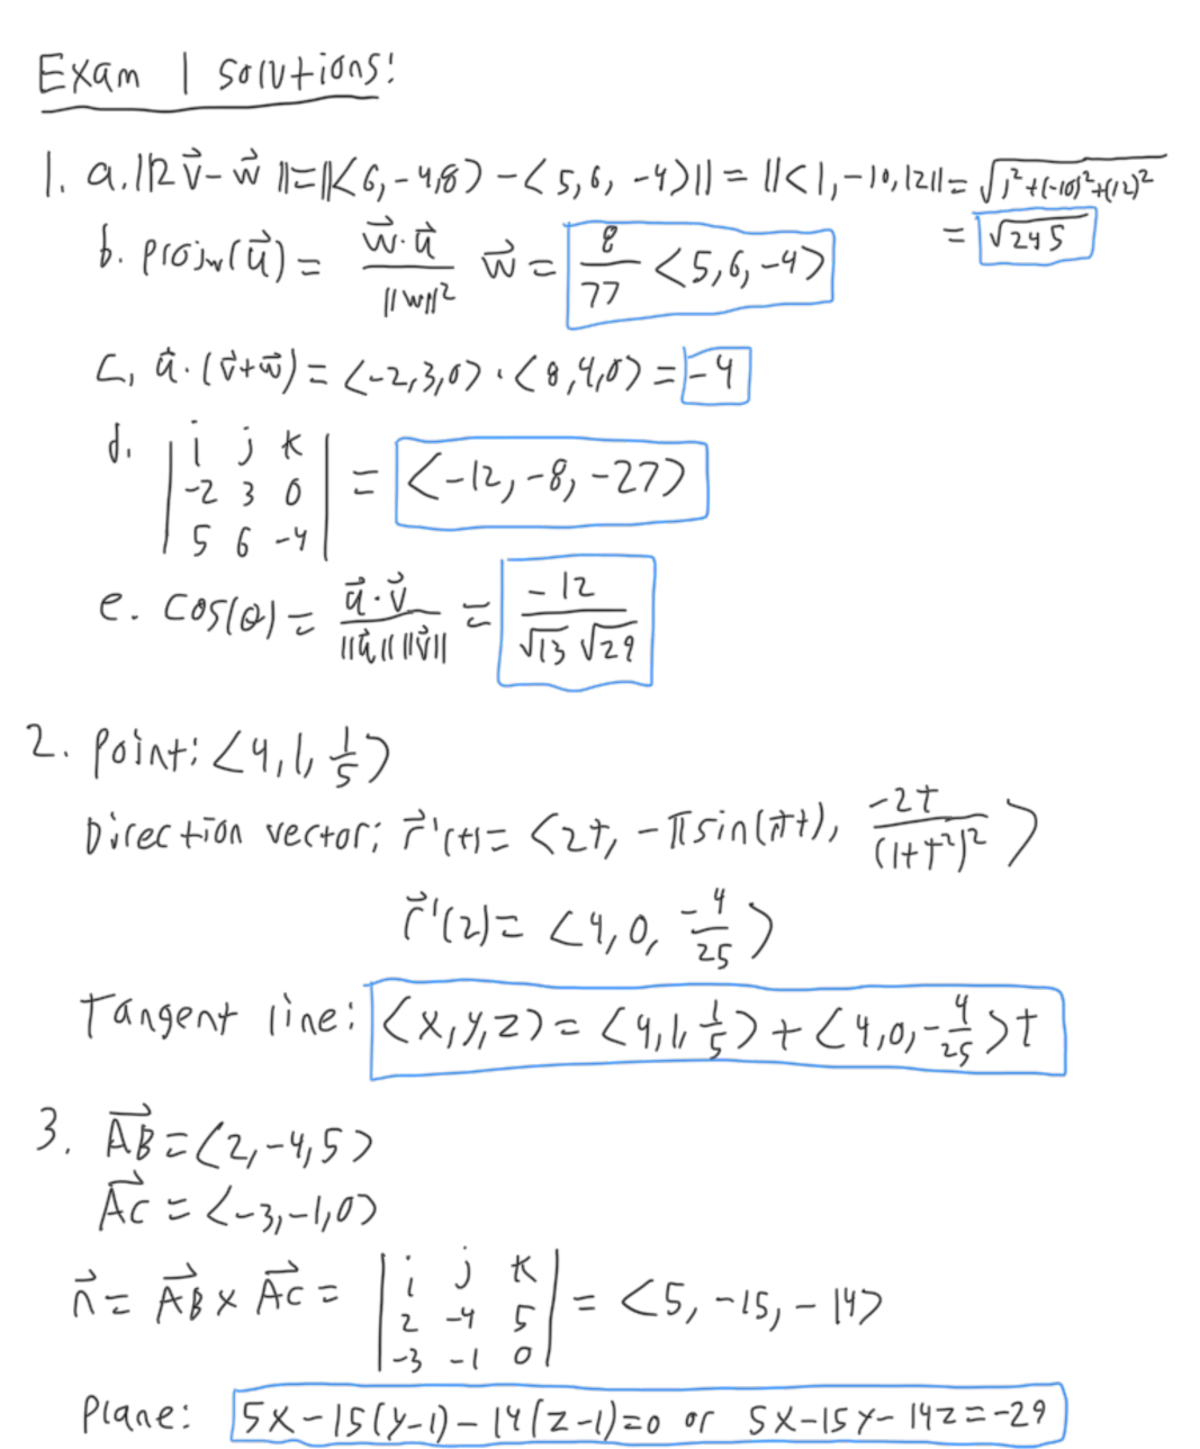 Exam 1 solutions!
1. a. ||2v⃗-w⃗||=||<6,-4,8>-<5,6,-4>||=||<1,-10,12||=√1²+(-10)²+(12)²
=√245
b. proj_w(u⃗)= w⃗·u⃗/||w||² w⃗ = 8/77 <5,6,-4>
c. u⃗·(v⃗+w⃗)=<-2,3,0>·<8,4,0>=-4
d. |i j k
-2 3 0
5 6 -4| = <-12,-8,-27>
e. cos(θ)= u⃗·v⃗/||u⃗|| ||v⃗|| = -12/√13 √29
2. Point: <4,1,1/5>
Direction vector; r⃗'(t)=<2t, -πsin(πt), -2t/(1+t²)²>
r⃗'(2)=<4,0,-4/25>
Tangent line: <x,y,z>=<4,1,1/5>+<4,0,-4/25>t
3. AB⃗=<2,-4,5>
AC⃗=<-3,-1,0>
n⃗=AB⃗×AC⃗= |i j k
2 -4 5
-3 -1 0| = <5,-15,-14>
Plane: 5x-15(y-1)-14(z-1)=0 or 5x-15y-14z=-29